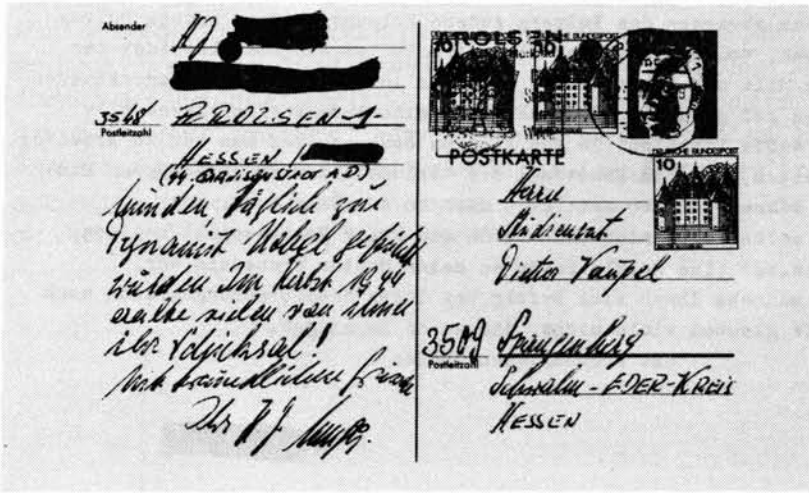 Absender
HJ
3548 AROLSEN-1-
Postleitzahl
HESSEN
(SS GARNISONSTADT A.D.)
täglich zur
Dynamit Nobel geführt
wurden. Im Herbst 1944
vielen von ihnen
ihr Schicksal!
Mit freundlichen
Ihr
AROLSEN
DEUTSCHE BUNDESPOST
10
10
POSTKARTE
DEUTSCHE BUNDESPOST
10
Herrn
Studienrat
Dieter Vaupel
3509 Spangenberg
Postleitzahl
Schwalm-EDER-KREIS
HESSEN